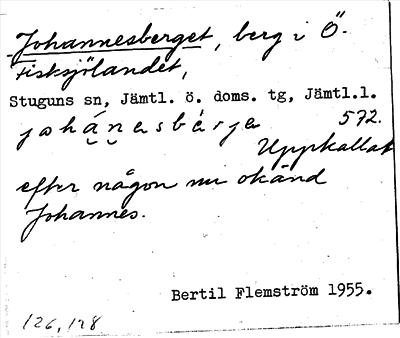 Johannesberget, berg i Ö.
Fisksjölandet,
Stuguns sn, Jämtl. ö. doms. tg, Jämtl.l.
johánesbärje 572.
Uppkallat
efter någon nu okänd
Johannes.
Bertil Flemström 1955.
126, 128